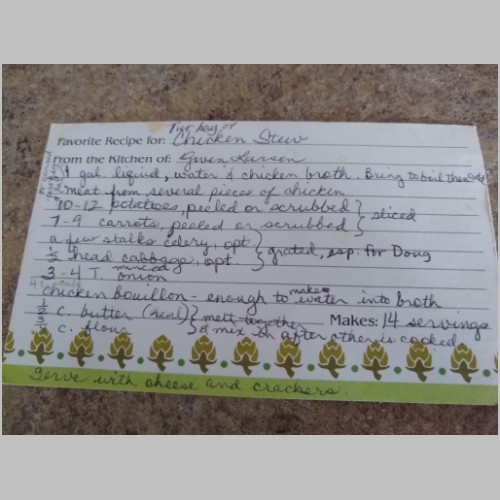 Turkey or
Favorite Recipe for: Chicken Stew
From the Kitchen of: Gwen Larson
1 gal. liquid, water & chicken broth. Bring to boil then add
meat from several pieces of chicken
10-12 potatoes, peeled or scrubbed } sliced
7-9 carrots, peeled or scrubbed
a few stalks celery, opt. } grated, esp. for Doug
1/2 head cabbage, opt.
3-4 T. minced onion
chicken bouillon - enough to make water into broth
1/2 c. butter (real) } melt together Makes: 14 servings
c. flour & mix in after other is cooked
Serve with cheese and crackers.